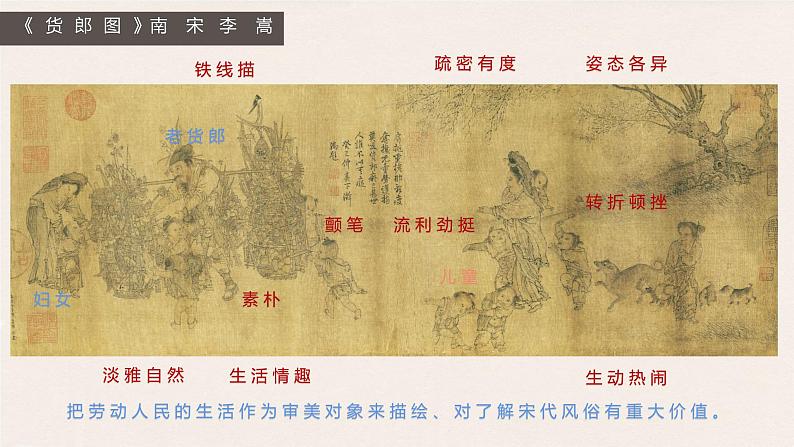 《货郎图》南宋李嵩
铁线描
疏密有度
姿态各异
老货郎
转折顿挫
颤笔
流利劲挺
儿童
妇女
素朴
淡雅自然
生活情趣
生动热闹
把劳动人民的生活作为审美对象来描绘、对了解宋代风俗有重大价值。